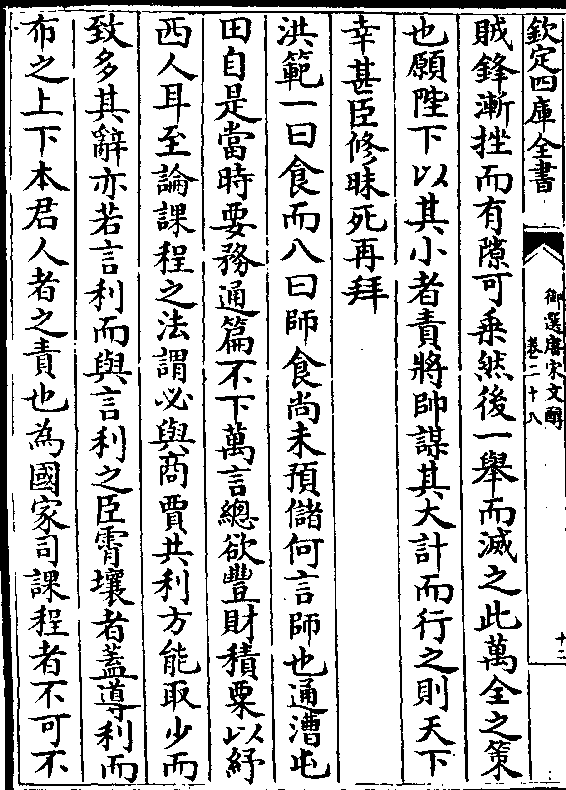 欽定四庫全書
御選唐宋文醇
卷二十八
十二
賊鋒漸挫而有隙可乘然後一舉而滅之此萬全之策
也願陛下以其小者責將帥謀其大計而行之則天下
幸甚臣修昧死再拜
洪範一曰食而八曰師食尚未預儲何言師也通漕屯
田自是當時要務通篇不下萬言總欲豐財積粟以紓
西人耳至論課程之法謂必與商賈共利方能取少而
致多其辭亦若言利而與言利之臣霄壤者蓋導利而
布之上下本君人者之責也為國家司課程者不可不